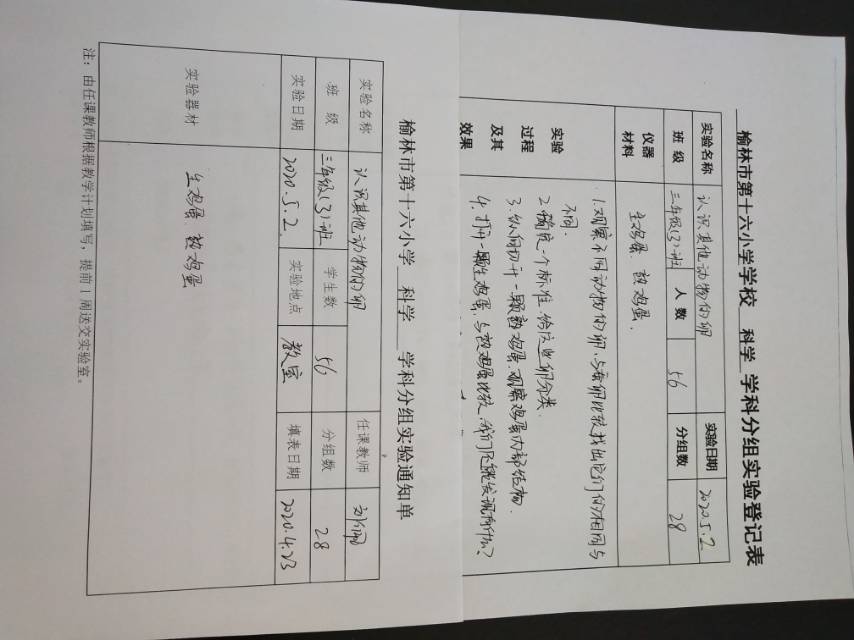 榆林市第十六小学学校 科学 学科分组实验登记表
实验名称 认识其他动物的卵 实验日期 2020.5.2
班级 三年级(3)班 人数 56 分组数 28
仪器材料 生鸡蛋、熟鸡蛋.
实验过程及其效果
1.观察不同动物的卵,与蚕卵比较找出它们的相同与
不同.
2.确定一个标准,给这些卵分类.
3.纵向切开一颗熟鸡蛋,观察鸡蛋内部结构.
4.打开一颗生鸡蛋,与熟鸡蛋比较,我们还能发现什么?
榆林市第十六小学 科学 学科分组实验通知单
实验名称 认识其他动物的卵 任课教师
班级 三年级(3)班 学生数 56 分组数 28
实验日期 2020.5.2. 实验地点 教室 填表日期 2020.4.23
实验器材 生鸡蛋 熟鸡蛋
注:由任课教师根据教学计划填写,提前1周送交实验室。